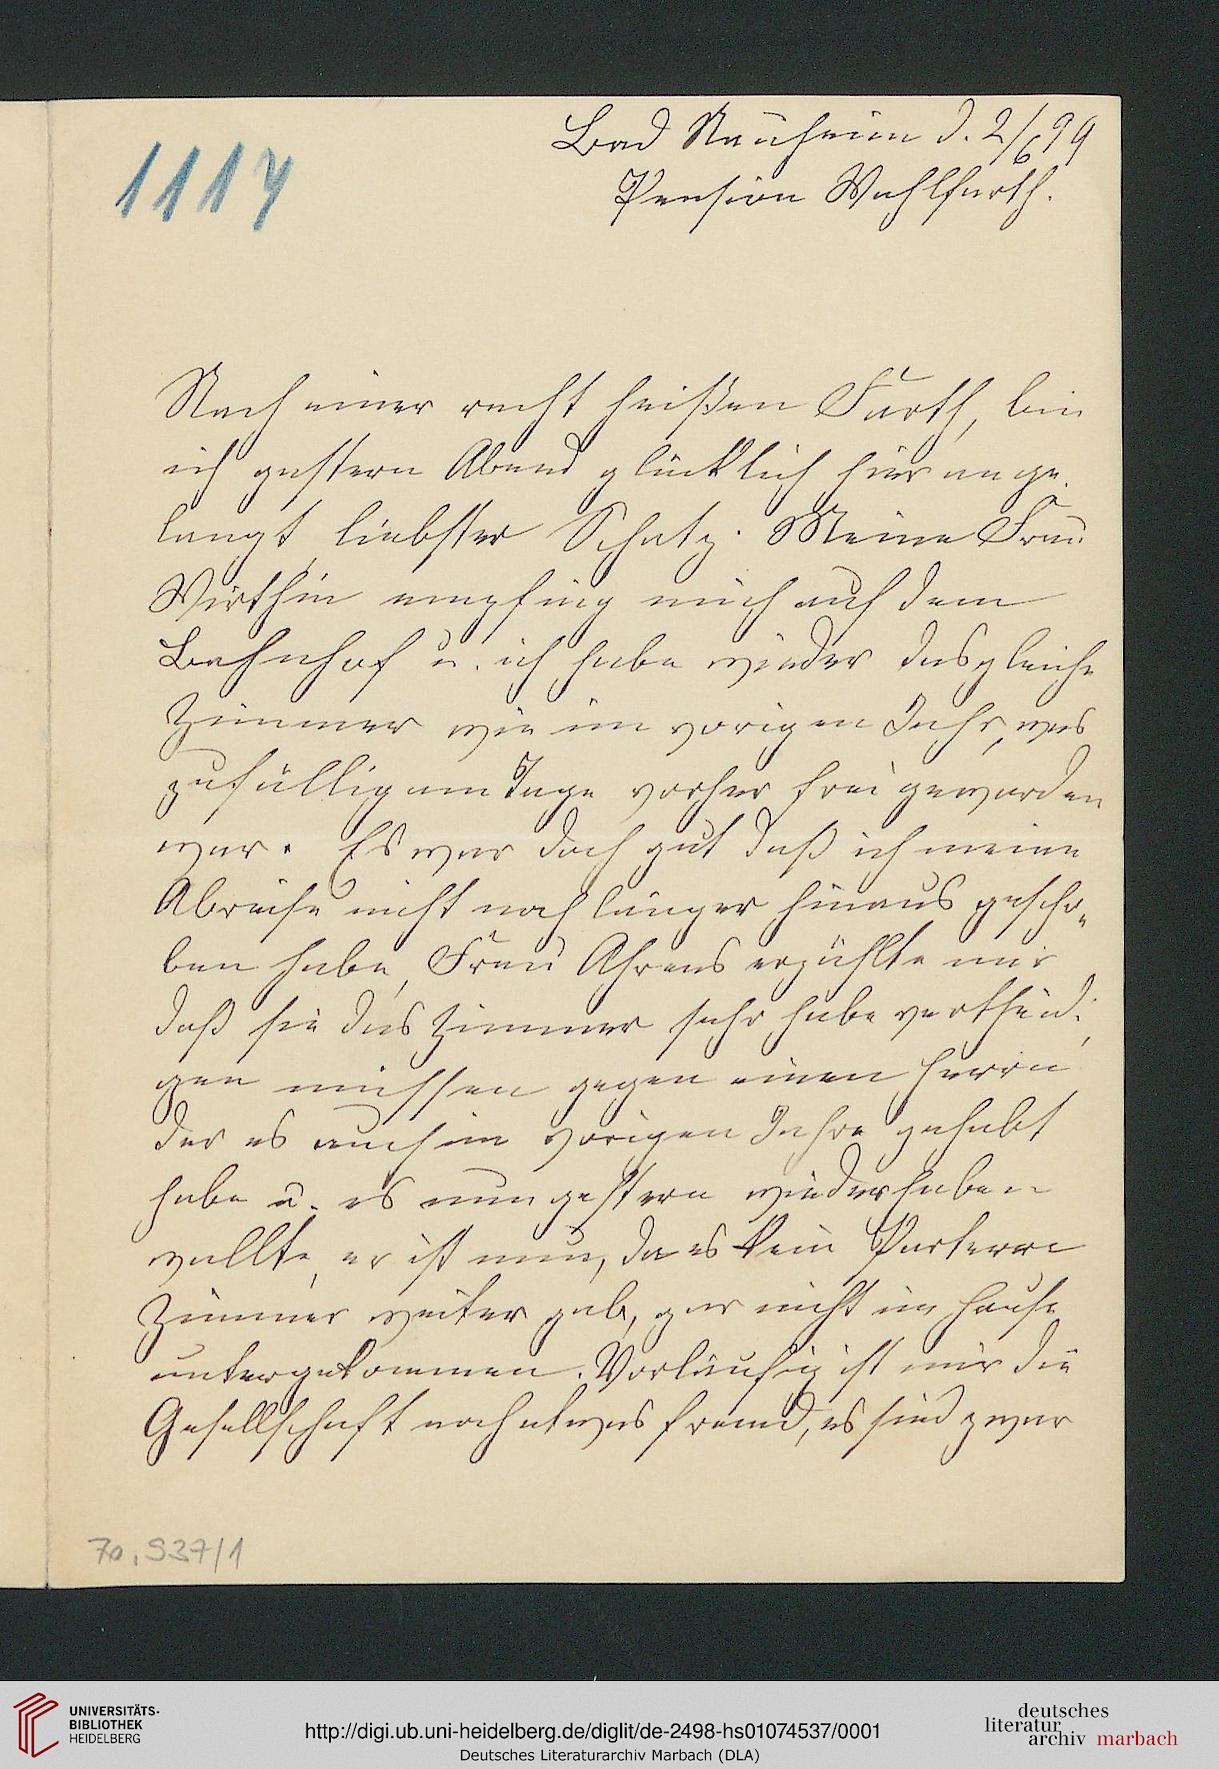 Bad Nauheim d. 2/6 99
1117
Pension Wahlfarth.
Nach einer recht heißen Farth, bin
ich gestern Abend glücklich hier ange-
langt, liebster Schatz. Meine Frau
Wirthin empfing mich auf dem
Bahnhof u. ich habe wieder dasgleiche
Zimmer wie im vorigen Jahr, was
zufällig am Tage vorher frei geworden
war. Es war doch gut daß ich meine
Abreise nicht noch länger hinaus gescho-
ben habe, Frau Ahrens erzählte mir
daß sie das Zimmer sehr habe vertheidi-
gen müssen gegen einen Herrn
der es auch im vorigen Jahre gehabt
habe u. es nun gestern wiederhaben
wollte, er ist nun, da es kein Parterre
Zimmer weiter gab, gar nicht im Hause
untergekommen. Vorläufig ist mir die
Gesellschaft noch etwas fremd, es sind zwar
70.937/1
UNIVERSITÄTS-
BIBLIOTHEK
HEIDELBERG
http://digi.ub.uni-heidelberg.de/diglit/de-2498-hs01074537/0001
Deutsches Literaturarchiv Marbach (DLA)
deutsches
literatur
archiv marbach